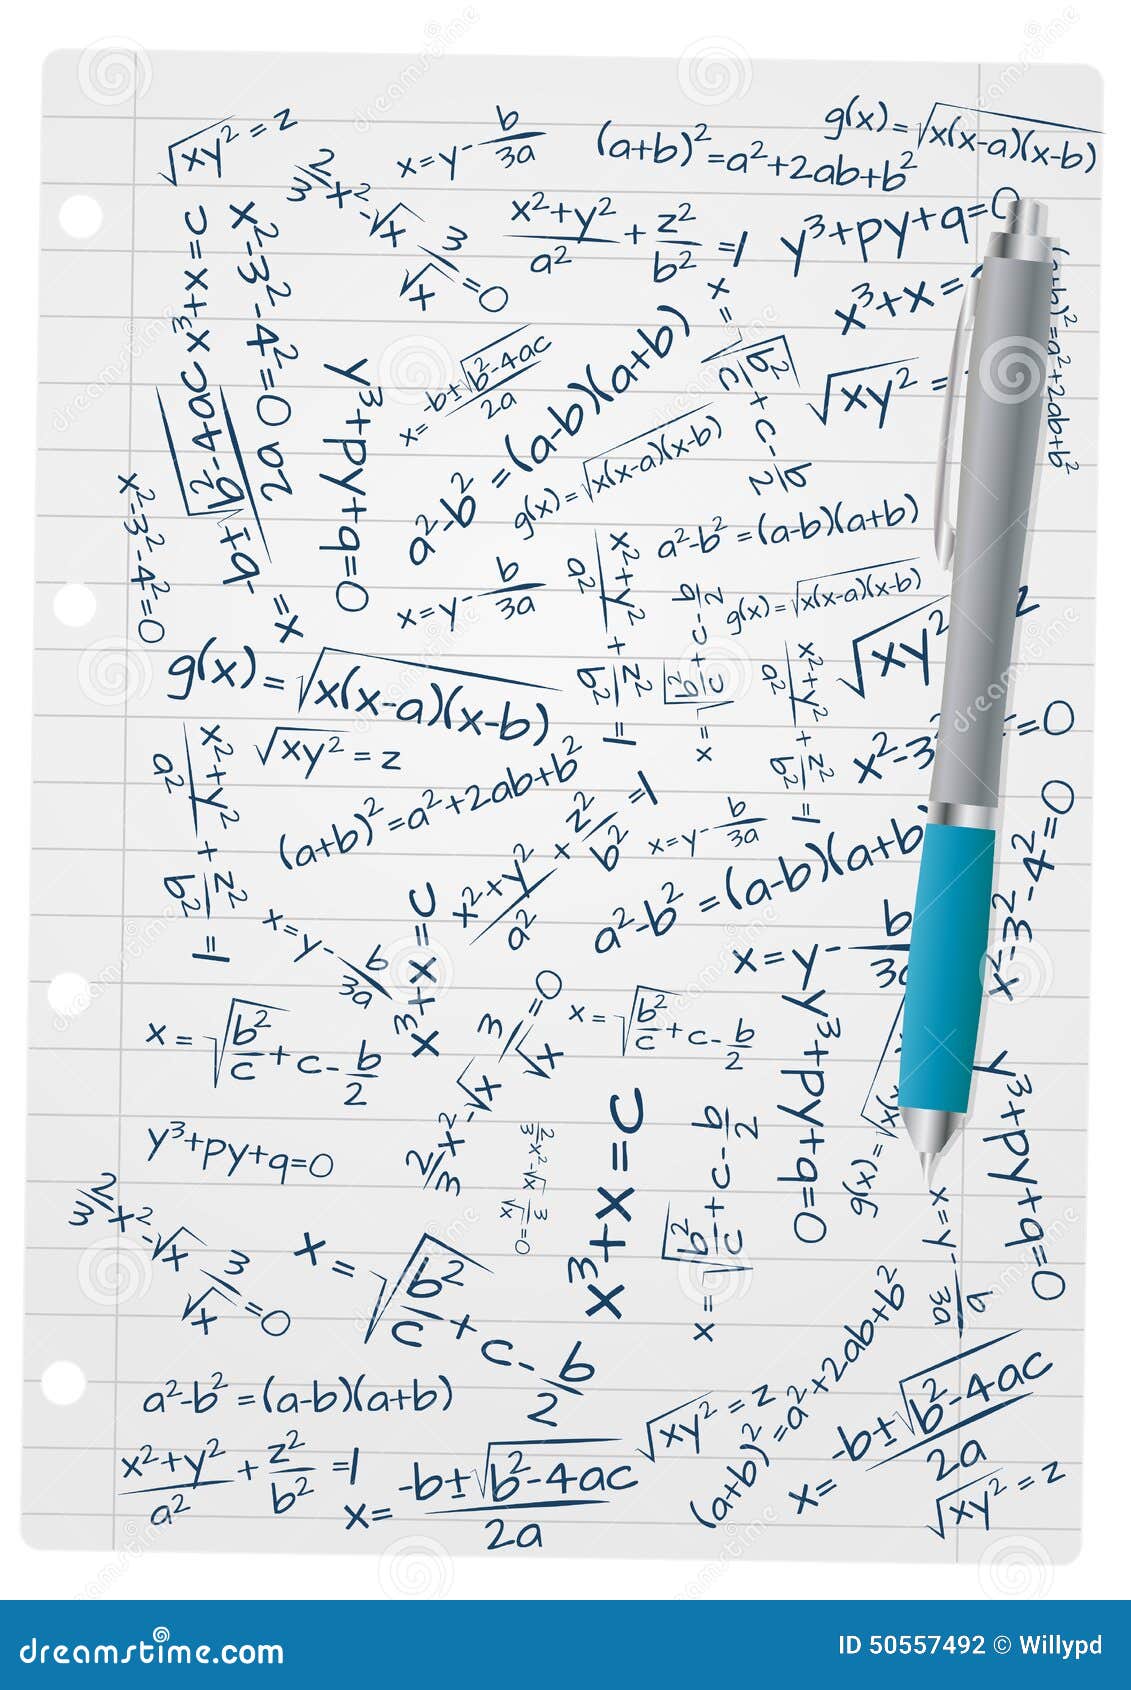 √xy² = z
x = y - b/3a
(a+b)² = a²+2ab+b²
g(x) = √x(x-a)(x-b)
2/3 x² - √x 3/√x = 0
(x²+y²)/a² + z²/b² = 1
y³+py+q=0
x³+x=c
x²-3²-4²=0
x³+x=
(a+b)²=a²+2ab+b²
x = (-b±√b²-4ac)/2a
y³+py+q=0
x = (-b±√b²-4ac)/2a
a²-b² = (a-b)(a+b)
x = √b²/c + c - b/2
√xy² =
g(x) = √x(x-a)(x-b)
x²-3²-4²=0
a²-b² = (a-b)(a+b)
x = y - b/3a
(x²+y²)/a² + z²/b² = 1
x = √b²/c + c - b/2
g(x) = √x(x-a)(x-b)
√xy² z
g(x) = √x(x-a)(x-b)
(x²+y²)/a² + z²/b² = 1
x²-3² =0
√xy² = z
(x²+y²)/a² + z²/b² = 1
(a+b)² = a²+2ab+b²
(x²+y²)/a² + z²/b² = 1
x = y - b/3a
a²-b² = (a-b)(a+b)
x²-3²-4²=0
x = y - b/3a
x³+x=c
x = y - b/3a
x = √b²/c + c - b/2
2/3 x² - √x 3/√x = 0
x = √b²/c + c - b/2
y³+py+q=0
g(x) = √x(x
y³+py+q=0
y³+py+q=0
2/3 x² - √x 3/√x = 0
x³+x=c
x = √b²/c + c - b/2
x = y - b/3a
2/3 x² - √x 3/√x = 0
x = √b²/c + c - b/2
a²-b² = (a-b)(a+b)
√xy² = z
(a+b)² = a²+2ab+b²
x = (-b±√b²-4ac)/2a
(x²+y²)/a² + z²/b² = 1
x = (-b±√b²-4ac)/2a
√xy² = z
dreamstime.com
ID 50557492 © Willypd